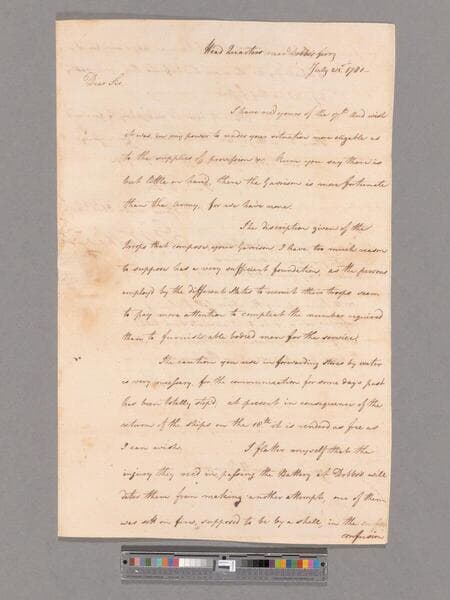 Head Quarters near Dobbs ferry
July 21st 1781
Dear Sir
I have recd yours of the 17th and wish
it was in my power to render your situation more eligable as
to the supplies of provision &c. Rum you say there is
but little on hand, there the Garrison is more fortunate
than the Army, for we have none.
The discription given of the
troops that compose your Garrison I have too much reason
to suppose has a very sufficient foundation, as the persons
employd by the different States to recruit their troops seem
to pay more attention to compleat the number required
than to furnish able bodied men for the service.
The caution you use in forwarding stores by water
is very necessary, for the communication for some days past
has been totally stopd, at present in consequence of the
return of the ships on the 18th it is renderd as free as
I can wish. I flatter myself that the
injury they recd in passing the Battery at Dobbs's will
deter them from making another attempt, one of them
was sett on fire, supposed to be by a shell, in the
confusion